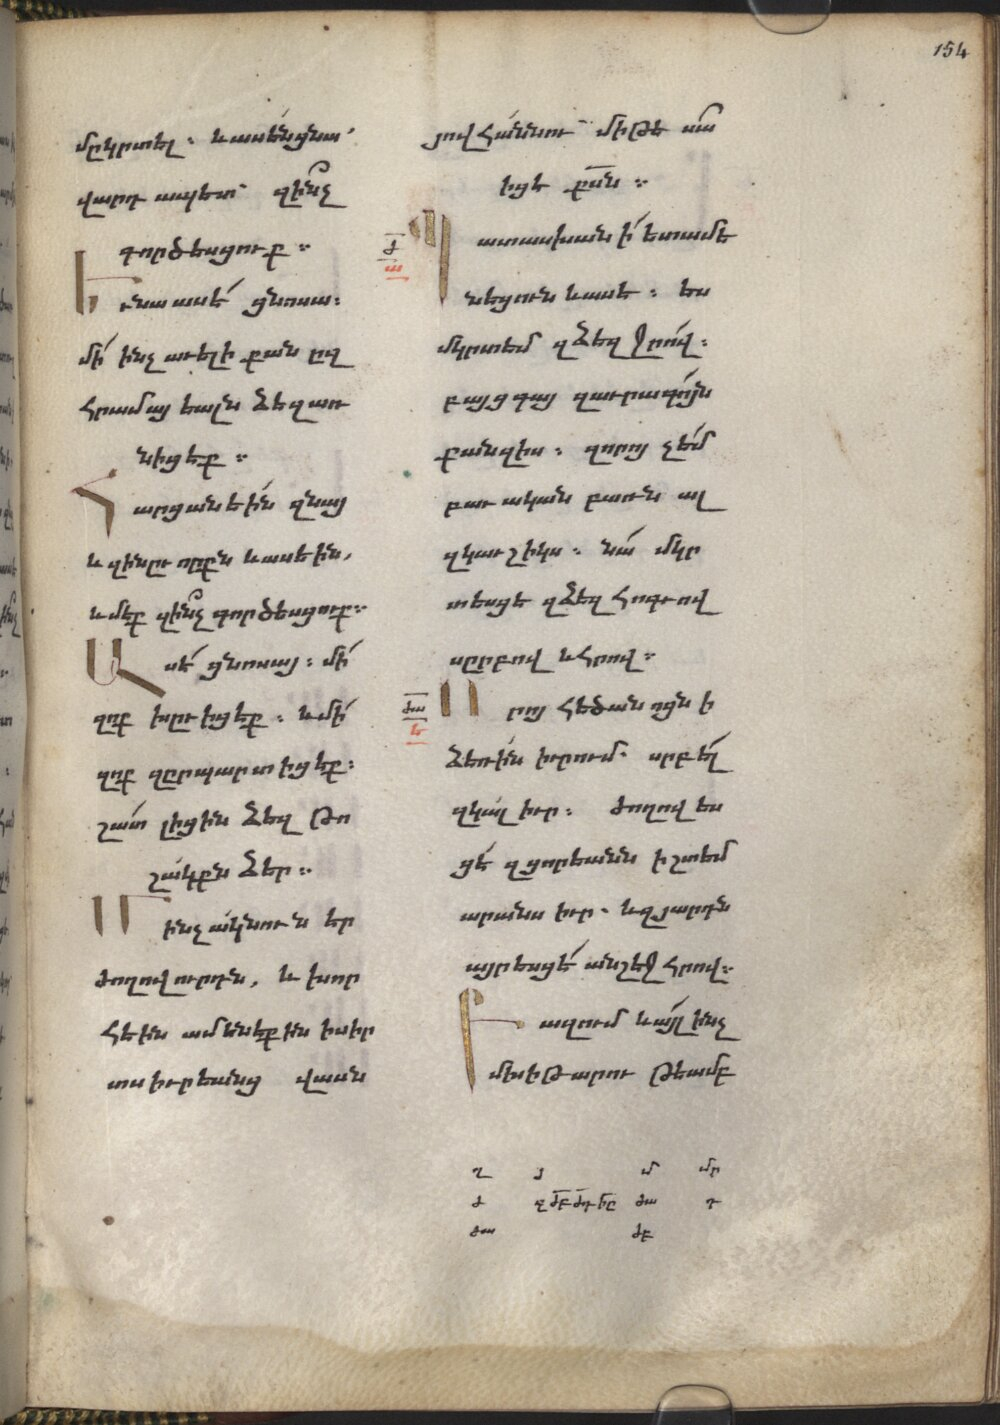 154
մըկրտել։ և ասեն ցնա՝
վարդ ապետ՝ զի՞նչ
գործեսցուք։
Եւ նա ասէ՛ ցնոսա։
մի՛ ինչ աւելի քան ըզ
հրամայեալն ձեզ առ
նիցեք։
Հարցանէին զնայ
և զինըւորքն և ասէին,
և մեք զի՞նչ գործեսցուք։
Ասէ՛ ցնոսայ։ մի՛
զոք խըռւիցեք։ և մի՛
զոք զըրպարտիցեք։
շատ լիցին ձեզ թո
շակքն ձեր։
Մինչ ակնունէր
ժողովուրդն, և խոր
հէին ամենեքին ի սիր
տս իւրեանց վասն
յովհաննու՝ մի թե նա
իցե քսն։
Պատասխանի՛ ետ ամե
նեցուն և ասե։ ես
մկրտեմ զձեզ ջրով։
բայց գայ զաւրագոյն
քան զիս։ զորոյ չեմ
բաւական բառնալ
զկաւշիկս։ նա մկր
տեսցե զձեզ հոգւով
սըրբով և հրով։
Որոյ հեծանոցն ի
ձեռին իւրում՝ սրբել
զկալ իւր։ ժողովես
ցէ զցորեանն ի շտեմ
արանս իւր՝ և զյարդն
այրեսցէ անշեջ հրով։
Բազում և այլ ինչ
մխիթարու թեամբ